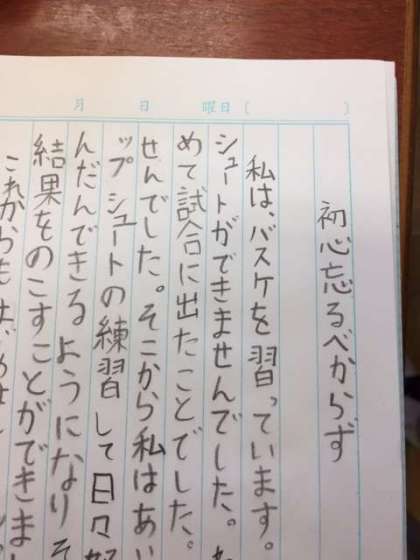 月 日 曜日 ( )
初心忘るべからず
私は、バスケを習っています。
シュートができませんでした。
めて試合に出たことでした。
せんでした。そこから私はあ
ップシュートの練習して日々
んだんできるようになりそ
結果をのこすことができまし
これからも